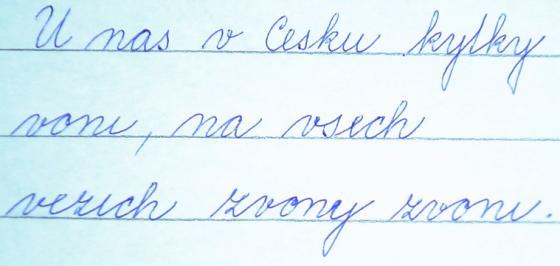 U nas v Cesku kytky
voni, na vsech
vezich zvony zvoni.